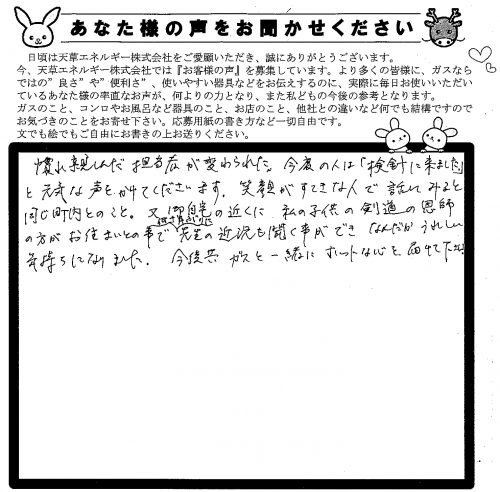 あなた様の声をお聞かせください
日頃は天草エネルギー株式会社をご愛顧いただき、誠にありがとうございます。
今、天草エネルギー株式会社では『お客様の声』を募集しています。より多くの皆様に、ガスなら
ではの”良さ”や”便利さ”、使いやすい器具などをお伝えするのに、実際に毎日お使いいただい
ているあなた様の率直なお声が、何よりの力となり、また私どもの今後の参考となります。
ガスのこと、コンロやお風呂など器具のこと、お店のこと、他社との違いなど何でも結構ですので
お気づきのことをお寄せ下さい。応募用紙の書き方など一切自由です。
文でも絵でもご自由にお書きの上お送りください。
慣れ親しんだ担当者が変わられた。今度の人は「検針に来ました」
と元気な声をかけてくださいます。笑顔がすてきな人で話してみると
同じ町内とのこと。又、御自宅の近くに私の子供の剣道の恩師
の方がお住まいとの事で先生の近況も聞く事ができなんだかうれしい
気持ちになりました。今後共ガスと一緒にホットな心を届けて下さい